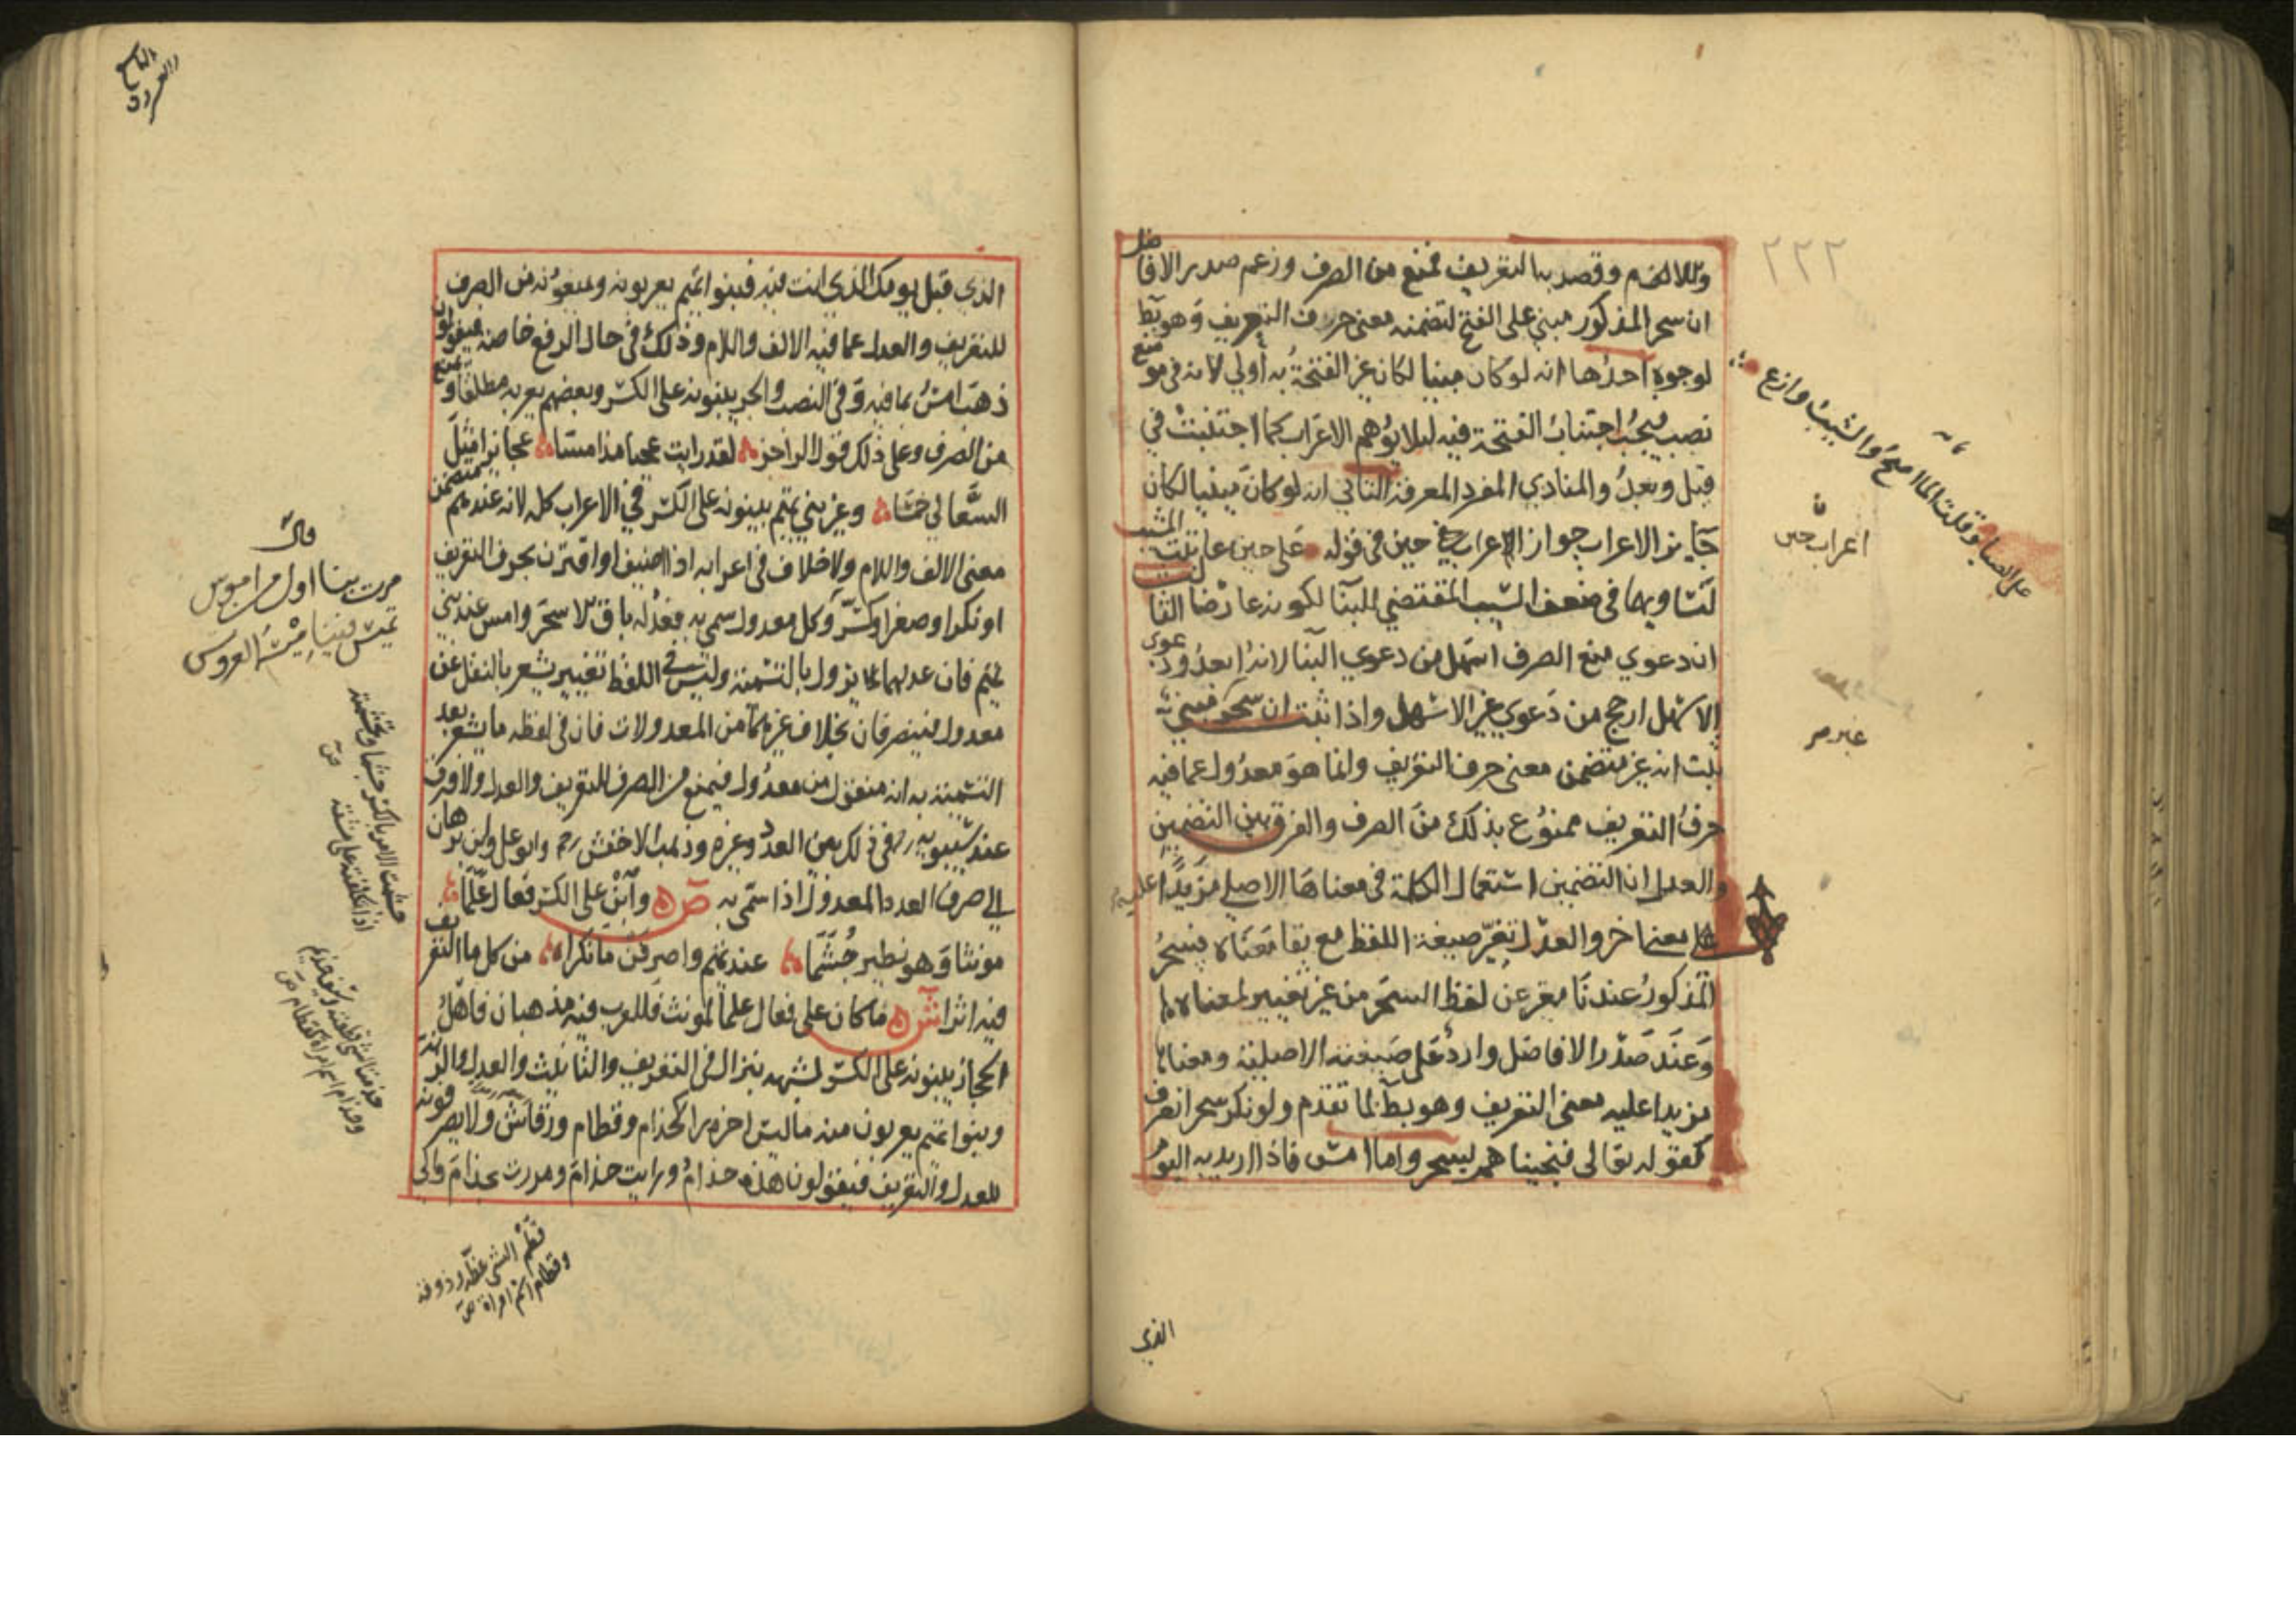 ٢٢٢
واللام وقصد به التعريف فمنع من الصرف وزعم صدر الافاضل
ان سحر المذكور مبني على الفتح لتضمنه معنى حرف التعريف وهو بط
لوجوه احدها انه لو كان مبنيا لكان غير الفتحة به أولي لانه في موضع
نصب فيجب اجتناب الفتحة فيه ليلا يوهم الاعراب كما اجتنبت في
قبل وبعد والمنادي المفرد المعرفة الثاني انه لو كان مبنيا لكان
جايز الاعراب جواز اعراب حين في قوله على حين عاتبت المشيب
لتساويهما في ضعف السبب المقتضي للبنآ لكونه عارضا الثالث
ان دعوي منع الصرف اسهل من دعوي البنا لانه ابعد ودعوي
الاسهل ارجح من دعوي غير الاسهل واذا ثبت ان سحر
ثبت انه غير متضمن معنى حرف التعريف وانما هو معدول عما فيه
حرف التعريف ممنوع بذلك من الصرف والفرق بين التضمين
والعدل ان التضمين استعمال الكلمة في معناها الاصلي مزيدا عليه
معنى اخر والعدل تغير صيغة اللفظ مع بقا معناه فسحر
المذكور عندنا مغير عن لفظ السحر من غير تغيير لمعناه
وعند صدر الافاضل وارد على صيغته الاصلية ومعناه
مزيدا عليه معنى التعريف وهو بط لما تقدم ولو نكر سحر انصرف
كقوله تعالى فنجيناهم بسحر واما امس فاذا اريد به اليوم
على الصبا وقلت الما اصح والشيب وازع
اعراب حين
الذي
الذي قبل يومك الذي انت فيه فبنوا تميم يعربونه ويمنعونه من الصرف
للتعريف والعدل عما فيه الالف واللام وذلك في حال الرفع خاصة فيقولون
ذهب امس بما فيه وفي النصب والجر يبنونه على الكسر وبعضهم يعربه مطلقا ويمنع
من الصرف وعلى ذلك قول الراجز لقد رايت عجبا مذ امسا عجايزا مثل
السعالي خمسا وغير بني تميم يبنونه على الكسر في الاعراب كله لانه عندهم متضمن
معنى الالف واللام ولا خلاف في اعرابه اذا اضيف او اقترن بحرف التعريف
او نكر او صغر او كسر وكل معدول سمي به فعدله باق الا سحر وامس عند بني
تميم فان عدلهما يزول بالتسمية وليس في اللفظ تغيير يشعر بالنقل عن
معدول فينصرفان بخلاف غيرهما من المعدولات فان في لفظه ما يشعر بعد
التسمية به انه منقول من معدول فيمنع من الصرف للتعريف والعدل ولا فرق
عند سيبويه في ذلك بين العدد وغيره وذهب الاخفش وابو علي وابن برهان
الي صرف العدد المعدول اذا سمي به ص وابن على الكسر فعال علما
مونثا وهو نظير جشما عند تميم واصرفن ما نكرا من كل ما التعريف
فيه اثرا ش ما كان على فعال علما لمونث فللعرب فيه مذهبان فاهل
الحجاز يبنونه على الكسر لشبهه بنزال في التعريف والتانيث والعدل والزنة
وبنوا تميم يعربون منه ما ليس اخره را كحذام وقطام ورقاش ولا يصرفونه
للعدل والتعريف فيقولون هذه حذام ورايت حذام ومررت بحذام والى
قال
مرت بنا اول من اموس
تميس فينا ميسة العروس
جشمت الامر بالكسر جشما وتجشمته
اذا تكلفته على مشقة
وحذام اسم امراة كقطام
وقطام اسم امراة ص